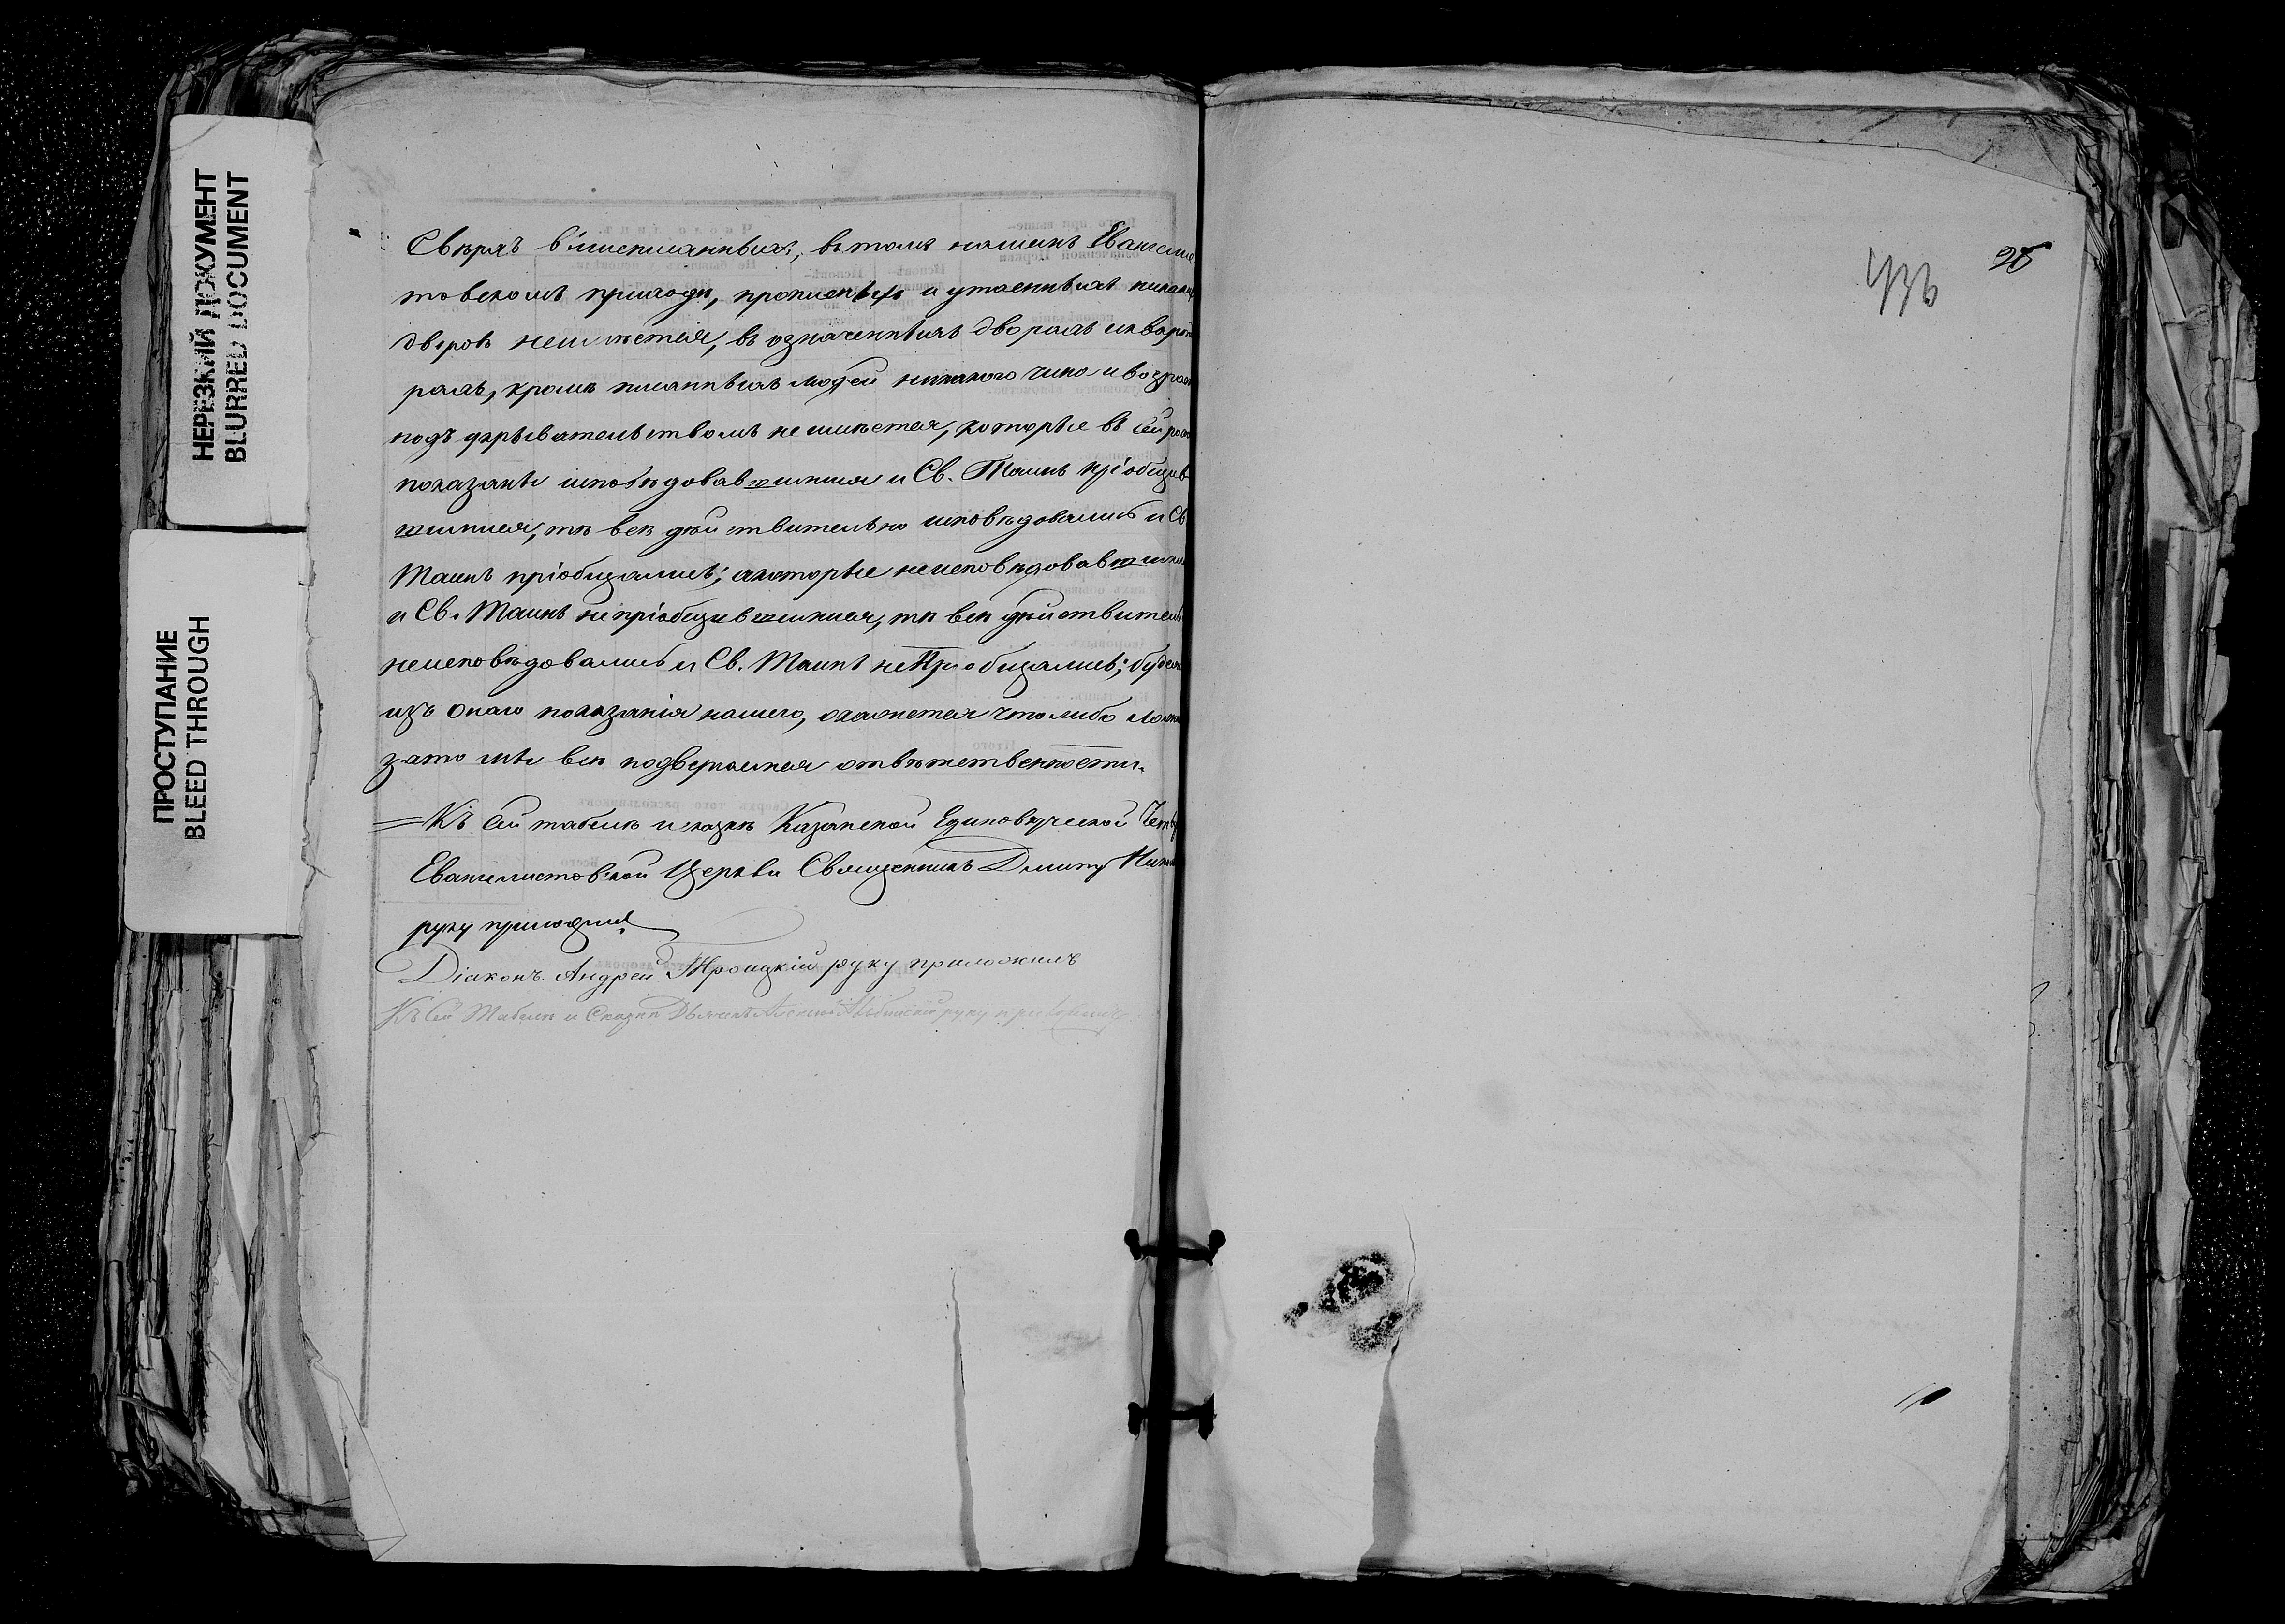 НЕРЕЗКИЙ ДОКУМЕНТ
BLURRED DOCUMENT
ПРОСТУПАНИЕ
BLEED THROUGH
Сверхъ вышеписанныхъ, въ томъ нашемъ Евангелис
товскомъ приходѣ, прописныхъ и утаенныхъ никаких
дворовъ неимѣется, въ означенныхъ дворахъ и кварти
рахъ, кромѣ писанныхъ людей никакого чина и возраст
подъ укрывательствомъ не имѣется, которые въ сей рос
показаны исповѣдовавшимися и Св. Таинъ пріобщив
шимися, тѣ всѣ дѣйствительно исповѣдовались и Св
Таинъ пріобщались; а которые неисповѣдовавшимис
и Св. Таинъ непріобщившимися, тѣ всѣ дѣйствитель
неисповѣдовались и Св. Таинъ не Пріобщались; будетъ
изъ онаго показанія нашего, окажется что либо ложн
за то мы всѣ подвергаемся отвѣтственности.
Къ сей табели и сказкѣ Казанской Единовѣрческой Четв
Евангелистовской Церкви Священникъ Дмитр
руку приложилъ
Діаконъ Андрей Троицкій руку приложилъ
Къ сей Табели и Сказкѣ Дьячекъ руку приложилъ
28